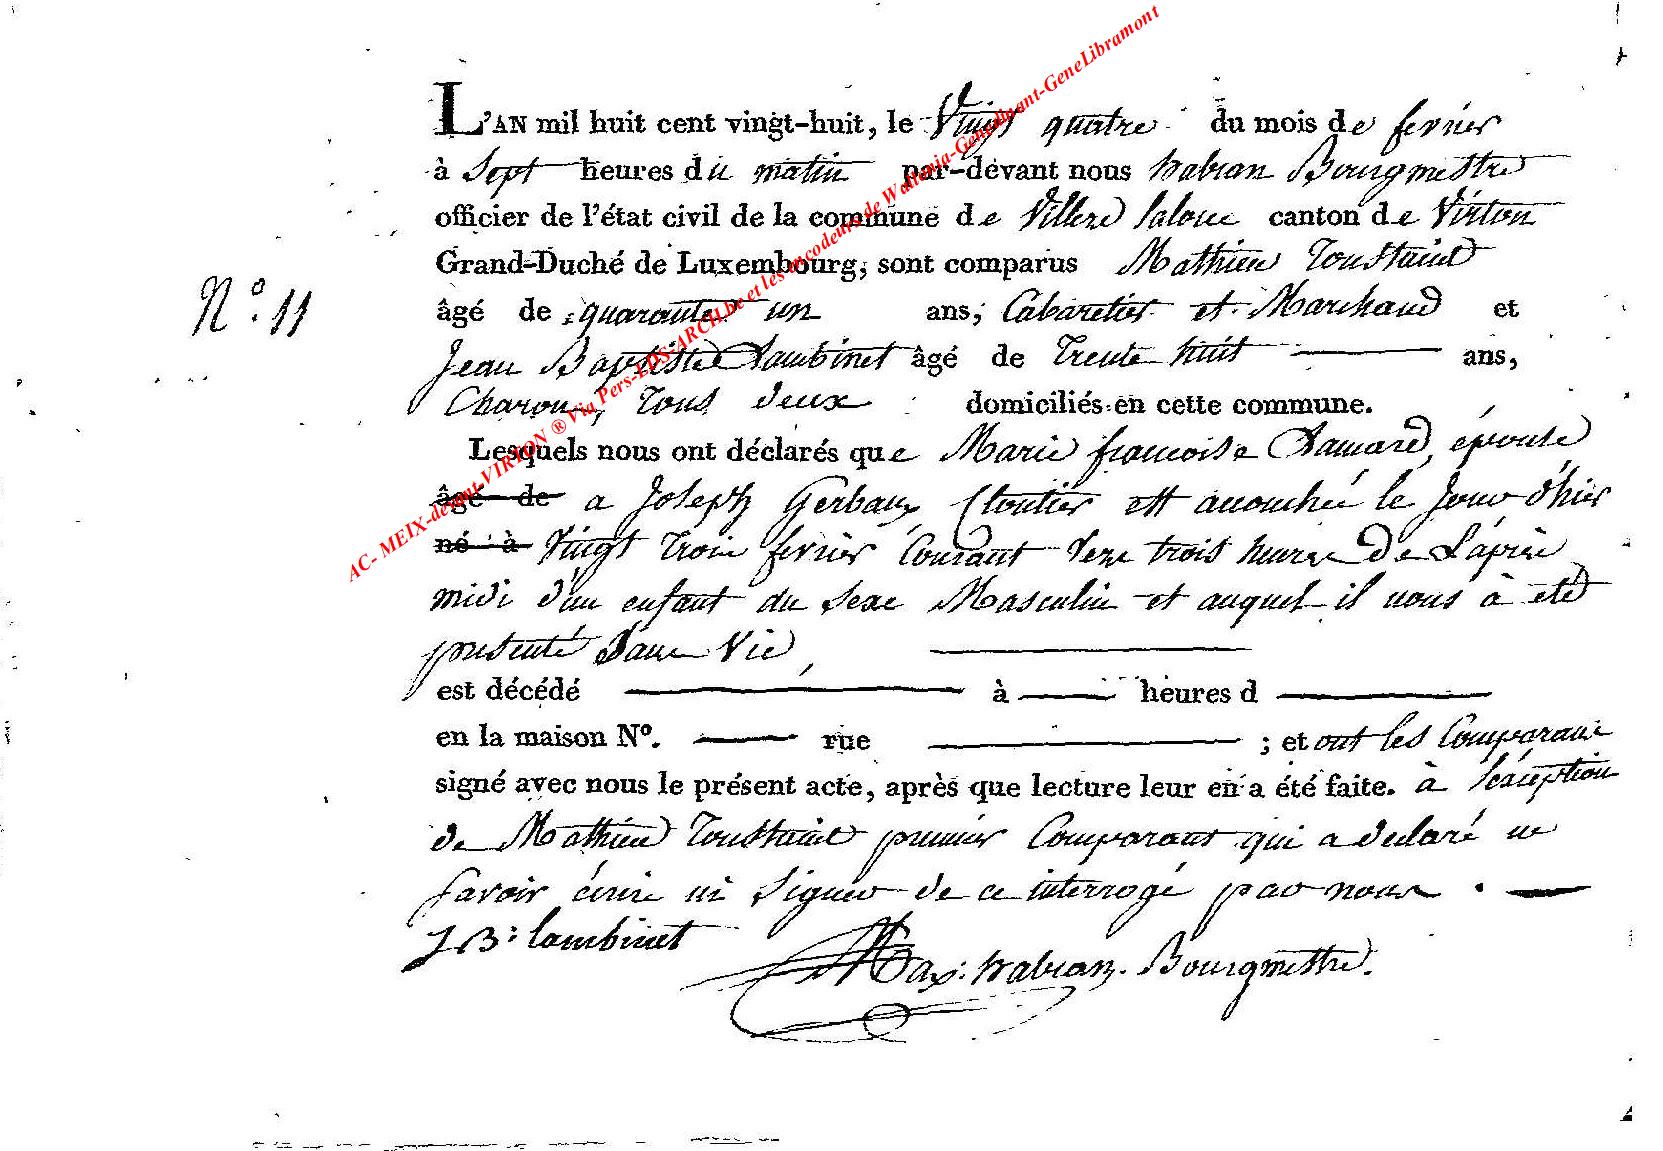 L'AN mil huit cent vingt-huit, le Vingt quatre du mois de fevrier
à Sept heures du matin par-devant nous habran Bourgmestre
officier de l'état civil de la commune de Villers laloue canton de Virton
Grand-Duché de Luxembourg, sont comparus Mathieu Toustaint
N.° 11
âgé de quarante un ans, Cabaretier et Marchand et
Jean Baptiste Lambinet âgé de Trente huit ans,
Charon, Tous deux domiciliés en cette commune.
Lesquels nous ont déclarés que Marie françoise Lamard, épouse
âgé de a Joseph Gerbaux Cloutier est accouchée le Jour d'hier
né à Vingt Trois fevrier Courant Vers trois heures De L'après
midi d'un enfant du sexe Masculin et auquel il nous à été
presenté Sans Vie,
est décédé à heures d
en la maison N°. rue ; et ont les Comparans
signé avec nous le présent acte, après que lecture leur en a été faite. à l'exception
de Mathieu Toustaint premier Comparant qui a declaré ne
savoir écrire ni Signer de ce interrogé par nous.
JB: lambinet
Max: habran. Bourgmestre.
AC- MEIX-devant-VIRTON ® Via Pers-EDS-ARCH.be et les encodeurs de Wallonia-Genedinant-GeneLibramont